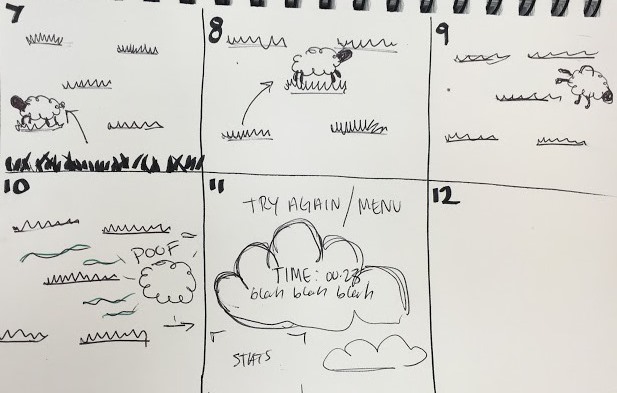 7
8
9
10
POOF
11
TRY AGAIN / MENU
TIME: 00:28
blah blah blah
STATS
12